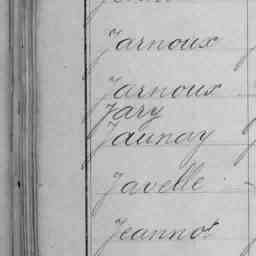 Jarnoux
Jarnoux
Jary
Jaunay
Javelle
Jeannot